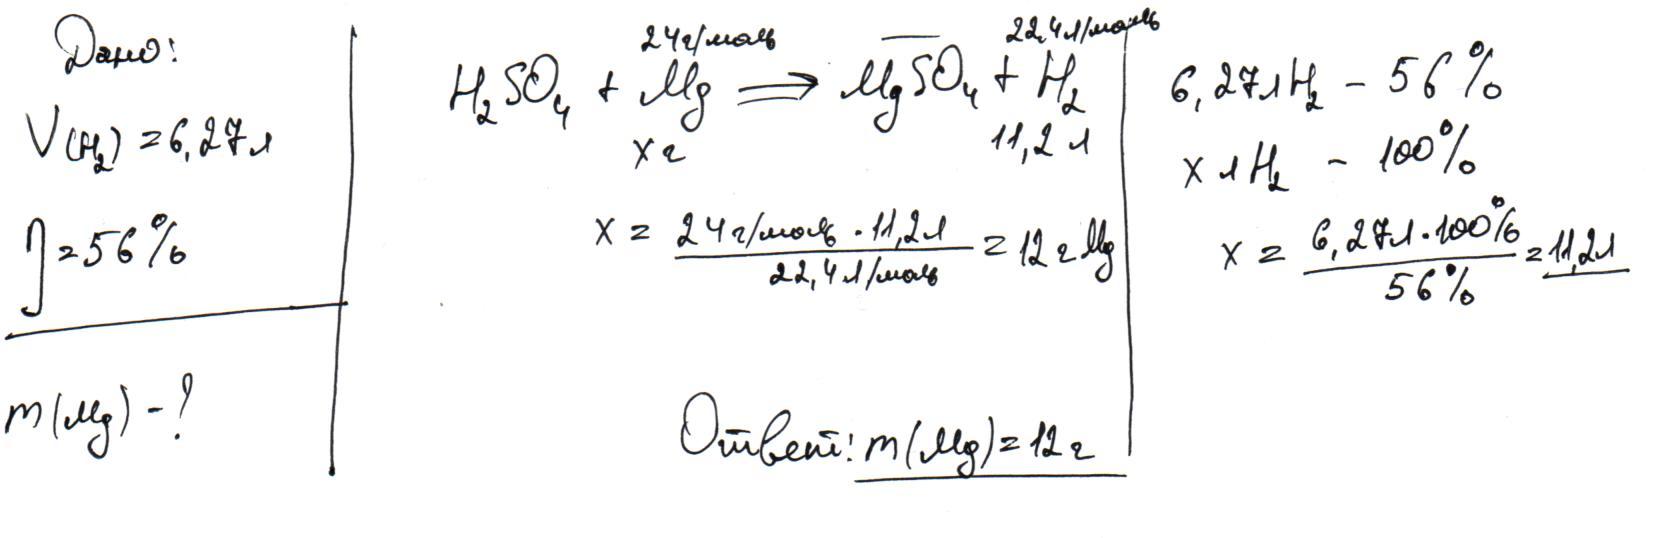 Дано:
V(H₂) = 6,27 л
η = 56%
m(Mg) - ?
24 г/моль 22,4 л/моль
H₂SO₄ + Mg ⟹ MgSO₄ + H₂
x г 11,2 л
x = 24 г/моль · 11,2 л / 22,4 л/моль = 12 г Mg
Ответ: m(Mg) = 12 г
6,27 л H₂ - 56%
x л H₂ - 100%
x = 6,27 л · 100% / 56% = 11,2 л